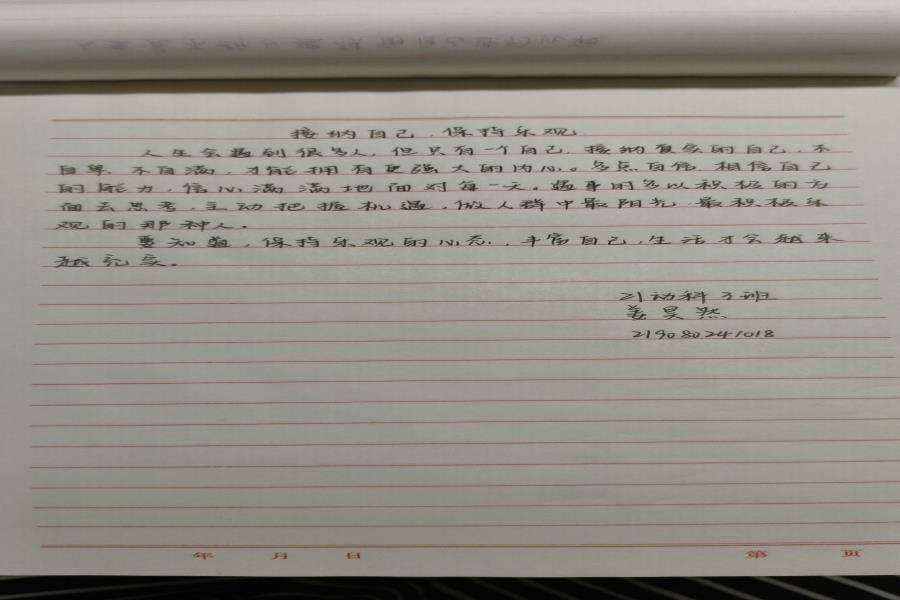 接纳自己,保持乐观
人生会遇到很多人,但只有一个自己,接纳复杂的自己,不
自卑,不自满,才能拥有更强大的内心。多点自信,相信自己
的能力,信心满满地面对每一天。遇事时多以积极的方
面去思考,主动把握机遇,做人群中最阳光,最积极乐
观的那种人。
要知道,保持乐观的心态,丰富自己,生活才会越来
越充实。
21动科3班
姜昊然
219080241018
年 月 日
第 页